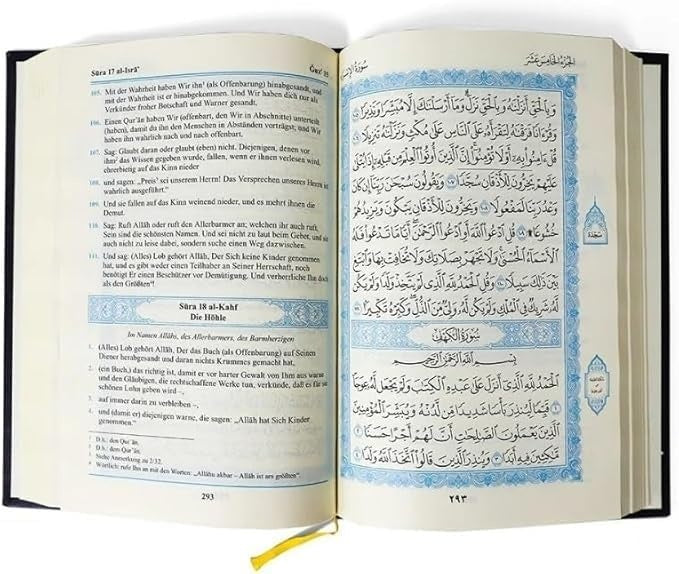 Sūra 17 al-Isrā'
Ǧuz' 15
105. Mit der Wahrheit haben Wir ihn¹ (als Offenbarung) hinabgesandt, und
mit der Wahrheit ist er hinabgekommen. Und Wir haben dich nur als
Verkünder froher Botschaft und Warner gesandt.
106. Einen Qur'ān haben Wir (offenbart, den Wir in Abschnitte) unterteilt
(haben), damit du ihn den Menschen in Abständen vorträgst; und Wir
haben ihn wahrlich nach und nach offenbart.
107. Sag: Glaubt daran oder glaubt (eben) nicht. Diejenigen, denen vor
ihm² das Wissen gegeben wurde, fallen, wenn er ihnen verlesen wird,
ehrerbietig auf das Kinn nieder
108. und sagen: „Preis³ sei unserem Herrn! Das Versprechen unseres Herrn ist
wahrlich ausgeführt.“
109. Und sie fallen auf das Kinn weinend nieder, und es mehrt ihnen die
Demut.
110. Sag: Ruft Allāh oder ruft den Allerbarmer an; welchen ihr auch ruft,
Sein sind die schönsten Namen. Und sei nicht zu laut beim Gebet, und sei
auch nicht zu leise dabei, sondern suche einen Weg dazwischen.
111. Und sag: (Alles) Lob gehört Allāh, Der Sich keine Kinder genommen
hat, und es gibt weder einen Teilhaber an Seiner Herrschaft, noch
benötigt Er einen Beschützer vor Demütigung. Und verherrliche Ihn doch
als den Größten⁴!
Sūra 18 al-Kahf
Die Höhle
Im Namen Allāhs, des Allerbarmers, des Barmherzigen
1. (Alles) Lob gehört Allāh, Der das Buch (als Offenbarung) auf Seinen
Diener herabgesandt und daran nichts Krummes gemacht hat,
2. (ein Buch,) das richtig ist, damit er vor harter Gewalt von Ihm aus warne
und den Gläubigen, die rechtschaffene Werke tun, verkünde, daß es für sie
schönen Lohn geben wird –,
3. auf immer darin zu verbleiben –,
4. und (damit er) diejenigen warne, die sagen: „Allāh hat Sich Kinder
genommen.“
1 D.h.: den Qur'ān.
2 D.h.: den Qur'ān.
3 Siehe Anmerkung zu 2/32.
4 Wörtlich: rufe Ihn an mit den Worten: „Allāhu akbar – Allāh ist am größten“.
293
الجزء الخامس عشر
سورة الإسراء
وَبِالْحَقِّ أَنزَلْنَٰهُ وَبِالْحَقِّ نَزَلَ وَمَا أَرْسَلْنَٰكَ إِلَّا مُبَشِّرًا وَنَذِيرًا ١٠٥
وَقُرْءَانًا فَرَقْنَٰهُ لِتَقْرَأَهُ عَلَى النَّاسِ عَلَىٰ مُكْثٍ وَنَزَّلْنَٰهُ تَنزِيلًا ١٠٦
قُلْ ءَامِنُوا بِهِ أَوْ لَا تُؤْمِنُوا إِنَّ الَّذِينَ أُوتُوا الْعِلْمَ مِن قَبْلِهِ إِذَا يُتْلَىٰ
عَلَيْهِمْ يَخِرُّونَ لِلْأَذْقَانِ سُجَّدًا ١٠٧ وَيَقُولُونَ سُبْحَٰنَ رَبِّنَا إِن كَانَ
وَعْدُ رَبِّنَا لَمَفْعُولًا ١٠٨ وَيَخِرُّونَ لِلْأَذْقَانِ يَبْكُونَ وَيَزِيدُهُمْ
خُشُوعًا ۩ ١٠٩ قُلِ ادْعُوا اللَّهَ أَوِ ادْعُوا الرَّحْمَٰنَ أَيًّا مَّا تَدْعُوا فَلَهُ
الْأَسْمَاءُ الْحُسْنَىٰ وَلَا تَجْهَرْ بِصَلَاتِكَ وَلَا تُخَافِتْ بِهَا وَابْتَغِ
بَيْنَ ذَٰلِكَ سَبِيلًا ١١٠ وَقُلِ الْحَمْدُ لِلَّهِ الَّذِي لَمْ يَتَّخِذْ وَلَدًا وَلَمْ يَكُن
لَّهُ شَرِيكٌ فِي الْمُلْكِ وَلَمْ يَكُن لَّهُ وَلِيٌّ مِّنَ الذُّلِّ وَكَبِّرْهُ تَكْبِيرًا ١١١
سُورَةُ الْكَهْفِ
بِسْمِ اللَّهِ الرَّحْمَٰنِ الرَّحِيمِ
الْحَمْدُ لِلَّهِ الَّذِي أَنزَلَ عَلَىٰ عَبْدِهِ الْكِتَٰبَ وَلَمْ يَجْعَل لَّهُ عِوَجًا ١
قَيِّمًا لِّيُنذِرَ بَأْسًا شَدِيدًا مِّن لَّدُنْهُ وَيُبَشِّرَ الْمُؤْمِنِينَ
الَّذِينَ يَعْمَلُونَ الصَّٰلِحَٰتِ أَنَّ لَهُمْ أَجْرًا حَسَنًا ٢
مَّٰكِثِينَ فِيهِ أَبَدًا ٣ وَيُنذِرَ الَّذِينَ قَالُوا اتَّخَذَ اللَّهُ وَلَدًا ٤
سجدة
٢٩٣